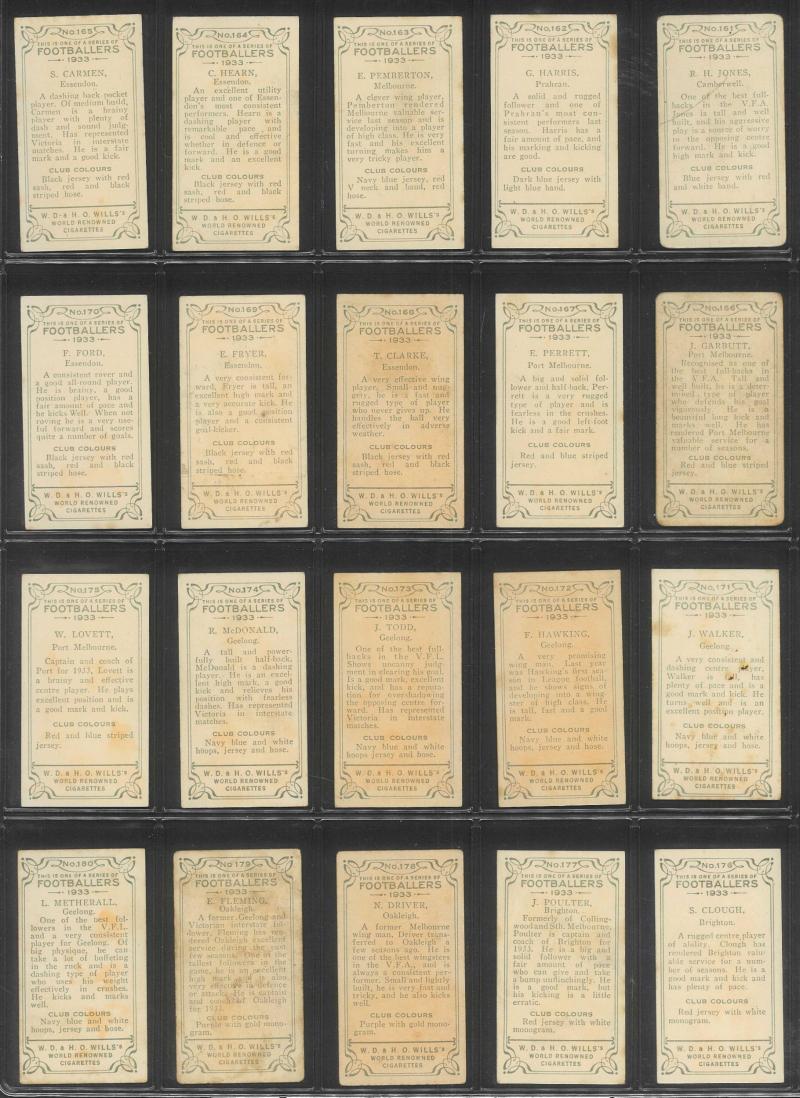 No.165
THIS IS ONE OF A SERIES OF
FOOTBALLERS
1933
S. CARMEN,
Essendon.
A dashing back pocket
player. Of medium build,
Carmen is a brainy
player with plenty of
dash and sound judg-
ment. Has represented
Victoria in interstate
matches. He is a fair
mark and a good kick.
CLUB COLOURS
Black jersey with red
sash, red and black
striped hose.
W. D. & H. O. WILLS'S
WORLD RENOWNED
CIGARETTES
No.164
THIS IS ONE OF A SERIES OF
FOOTBALLERS
1933
C. HEARN,
Essendon.
An excellent utility
player and one of Essen-
don's most consistent
performers. Hearn is a
dashing player with
remarkable pace, and
is cool and effective
whether in defence or
forward. He is a good
mark and an excellent
kick.
CLUB COLOURS
Black jersey with red
sash, red and black
striped hose.
W. D. & H. O. WILLS'S
WORLD RENOWNED
CIGARETTES
No.163
THIS IS ONE OF A SERIES OF
FOOTBALLERS
1933
E. PEMBERTON,
Melbourne.
A clever wing player,
Pemberton rendered
Melbourne valuable ser-
vice last season and is
developing into a player
of high class. He is very
fast and his excellent
turning makes him a
very tricky player.
CLUB COLOURS
Navy blue jersey, red
V neck and band, red
hose.
W. D. & H. O. WILLS'S
WORLD RENOWNED
CIGARETTES
No.162
THIS IS ONE OF A SERIES OF
FOOTBALLERS
1933
G. HARRIS,
Prahran.
A solid and rugged
follower and one of
Prahran's most con-
sistent performers last
season. Harris has a
fair amount of pace, and
his marking and kicking
are good.
CLUB COLOURS
Dark blue jersey with
light blue band.
W. D. & H. O. WILLS'S
WORLD RENOWNED
CIGARETTES
No.161
THIS IS ONE OF A SERIES OF
FOOTBALLERS
1933
R. H. JONES,
Camberwell.
One of the best full-
backs in the V.F.A.
Jones is tall and well
built, and his aggressive
play is a source of worry
to the opposing centre
forward. He is a good
high mark and kick.
CLUB COLOURS
Blue jersey with red
and white band.
W. D. & H. O. WILLS'S
WORLD RENOWNED
CIGARETTES
No.170
THIS IS ONE OF A SERIES OF
FOOTBALLERS
1933
F. FORD,
Essendon.
A consistent rover and
a good all-round player.
He is brainy, a good
position player, has a
fair amount of pace and
he kicks well. When not
roving he is a very use-
ful forward and scores
quite a number of goals.
CLUB COLOURS
Black jersey with red
sash, red and black
striped hose.
W. D. & H. O. WILLS'S
WORLD RENOWNED
CIGARETTES
No.169
THIS IS ONE OF A SERIES OF
FOOTBALLERS
1933
E. FRYER,
Essendon.
A very consistent for-
ward, Fryer is tall, an
excellent high mark and
a very accurate kick. He
is also a good position
player and a consistent
goal-kicker.
CLUB COLOURS
Black jersey with red
sash, red and black
striped hose.
W. D. & H. O. WILLS'S
WORLD RENOWNED
CIGARETTES
No.168
THIS IS ONE OF A SERIES OF
FOOTBALLERS
1933
T. CLARKE,
Essendon.
A very effective wing
player. Small and nug-
gety, he is a fast and
rugged type of player
who never gives up. He
handles the ball very
effectively in adverse
weather.
CLUB COLOURS
Black jersey with red
sash, red and black
striped hose.
W. D. & H. O. WILLS'S
WORLD RENOWNED
CIGARETTES
No.167
THIS IS ONE OF A SERIES OF
FOOTBALLERS
1933
E. PERRETT,
Port Melbourne.
A big and solid fol-
lower and half-back, Per-
rett is a very rugged
type of player and is
fearless in the crushes.
He is a good left-foot
kick and a fair mark.
CLUB COLOURS
Red and blue striped
jersey.
W. D. & H. O. WILLS'S
WORLD RENOWNED
CIGARETTES
No.166
THIS IS ONE OF A SERIES OF
FOOTBALLERS
1933
J. GARBUTT,
Port Melbourne.
Recognised as one of
the best full-backs in
the V.F.A. Tall and
well built, he is a deter-
mined type of player
who defends his goal
vigorously. He is a
beautiful long kick and
marks well. He has
rendered Port Melbourne
valuable service for a
number of seasons.
CLUB COLOURS
Red and blue striped
jersey.
W. D. & H. O. WILLS'S
WORLD RENOWNED
CIGARETTES
No.175
THIS IS ONE OF A SERIES OF
FOOTBALLERS
1933
W. LOVETT,
Port Melbourne.
Captain and coach of
Port for 1933, Lovett is
a brainy and effective
centre player. He plays
excellent position and is
a good mark and kick.
CLUB COLOURS
Red and blue striped
jersey.
W. D. & H. O. WILLS'S
WORLD RENOWNED
CIGARETTES
No.174
THIS IS ONE OF A SERIES OF
FOOTBALLERS
1933
R. McDONALD,
Geelong.
A tall and power-
fully built half-back,
McDonald is a dashing
player. He is an excel-
lent high mark, a good
kick and relieves his
position with fearless
dashes. Has represented
Victoria in interstate
matches.
CLUB COLOURS
Navy blue and white
hoops, jersey and hose.
W. D. & H. O. WILLS'S
WORLD RENOWNED
CIGARETTES
No.173
THIS IS ONE OF A SERIES OF
FOOTBALLERS
1933
J. TODD,
Geelong.
One of the best full-
backs in the V.F.L.
Shows uncanny judg-
ment in clearing his goal.
Is a good mark, excellent
kick, and has a reputa-
tion for overshadowing
the opposing centre for-
ward. Has represented
Victoria in interstate
matches.
CLUB COLOURS
Navy blue and white
hoops, jersey and hose.
W. D. & H. O. WILLS'S
WORLD RENOWNED
CIGARETTES
No.172
THIS IS ONE OF A SERIES OF
FOOTBALLERS
1933
F. HAWKING,
Geelong.
A very promising
wing man. Last year
was Hawking's first sea-
son in League football,
and he shows signs of
developing into a wing-
ster of high class. He
is tall, fast and a good
mark.
CLUB COLOURS
Navy blue and white
hoops, jersey and hose.
W. D. & H. O. WILLS'S
WORLD RENOWNED
CIGARETTES
No.171
THIS IS ONE OF A SERIES OF
FOOTBALLERS
1933
J. WALKER,
Geelong.
A very consistent and
dashing centre player,
Walker is tall, has
plenty of pace and is a
good mark and kick. He
turns well and is an
excellent position player.
CLUB COLOURS
Navy blue and white
hoops, jersey and hose.
W. D. & H. O. WILLS'S
WORLD RENOWNED
CIGARETTES
No.180
THIS IS ONE OF A SERIES OF
FOOTBALLERS
1933
L. METHERALL,
Geelong.
One of the best fol-
lowers in the V.F.L.
and a very consistent
player for Geelong. Of
big physique, he can
take a lot of buffeting
in the ruck and is a
dashing type of player
who uses his weight
effectively in crushes.
He kicks and marks
well.
CLUB COLOURS
Navy blue and white
hoops, jersey and hose.
W. D. & H. O. WILLS'S
WORLD RENOWNED
CIGARETTES
No.179
THIS IS ONE OF A SERIES OF
FOOTBALLERS
1933
E. FLEMING,
Oakleigh.
A former Geelong and
Victorian interstate fol-
lower, Fleming has ren-
dered Oakleigh excellent
service during the past
few seasons. One of the
tallest followers in the
game, he is an excellent
high mark and is also
very effective in defence
or attack. He is captain
and coach of Oakleigh
for 1933.
CLUB COLOURS
Purple with gold mono-
gram.
W. D. & H. O. WILLS'S
WORLD RENOWNED
CIGARETTES
No.178
THIS IS ONE OF A SERIES OF
FOOTBALLERS
1933
N. DRIVER,
Oakleigh.
A former Melbourne
wing man, Driver trans-
ferred to Oakleigh a
few seasons ago. He is
one of the best wingsters
in the V.F.A., and is
always a consistent per-
former. Small and lightly
built, he is very fast and
tricky, and he also kicks
well.
CLUB COLOURS
Purple with gold mono-
gram.
W. D. & H. O. WILLS'S
WORLD RENOWNED
CIGARETTES
No.177
THIS IS ONE OF A SERIES OF
FOOTBALLERS
1933
J. POULTER,
Brighton.
Formerly of Colling-
wood and Sth. Melbourne,
Poulter is captain and
coach of Brighton for
1933. He is a big and
solid follower with a
fair amount of pace
who can give and take
a bump unflinchingly. He
is a good mark, but
his kicking is a little
erratic.
CLUB COLOURS
Red jersey with white
monogram.
W. D. & H. O. WILLS'S
WORLD RENOWNED
CIGARETTES
No.176
THIS IS ONE OF A SERIES OF
FOOTBALLERS
1933
S. CLOUGH,
Brighton.
A rugged centre player
of ability, Clough has
rendered Brighton valu-
able service for a num-
ber of seasons. He is a
good mark and kick and
has plenty of pace.
CLUB COLOURS
Red jersey with white
monogram.
W. D. & H. O. WILLS'S
WORLD RENOWNED
CIGARETTES